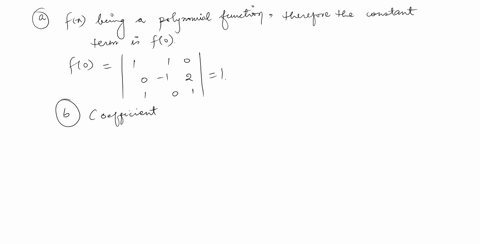 (a) f(x) being a polynomial function, therefore the constant
term is f(0).
f(0) = | 1 1 0 |
| 0 -1 2 | = 1.
| 1 0 1 |
(b) Coefficient